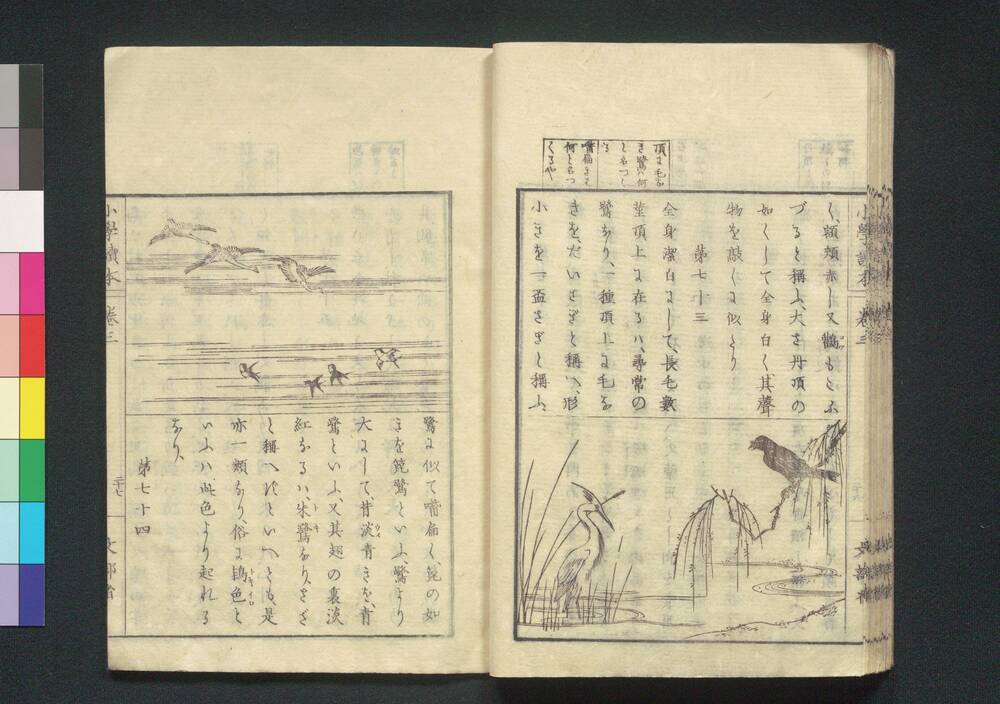 頂に毛な
き鷺は何
と名づく
る
嘴扁きを
何と名つ
くるや
く、頬頰赤し又鶴もとふ
づると稱ふ、大さ丹頂の
如くして全身白く、其聲
物を敲くに似たり
第七十三
全身潔白にして、長毛數
莖頂上に在るハ、尋常の
鷺なり、一種頂上に毛な
きをだいさぎと稱へ、形
小さきを一盃さぎと稱ふ
小學讀本
卷三
鷺に似て嘴扁く、篦の如
きを篦鷺といふ、鷺より
大にして、背淡青きを、青
鷺といふ、又其翅の裏淡
紅なるハ、朱鷺なり、さぎ
と稱へずといへとも、是
亦一類なり、俗に鴇色と
いふハ、此色より起れる
なり、
第七十四
小學讀本
卷三
三十七
文部省